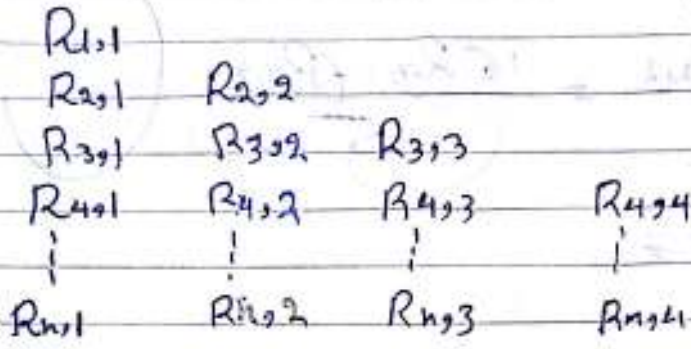 R1,1
R2,1 R2,2
R3,1 R3,2 R3,3
R4,1 R4,2 R4,3 R4,4
Rn,1 Rn,2 Rn,3 Rn,4